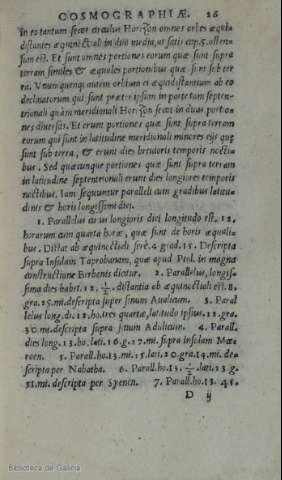 COSMOGRAPHIÆ. 26
In eo tantum secat circulus Horizon omnes orbes æqui-
distantes æquinoctiali in duo media, ut satis cap. 5. osten-
sum est. Et sunt omnes portiones eorum quæ sunt supra
terram similes & æquales portionibus quæ sunt sub ter
ra. Unumquenque autem orbium æquidistantium ab eo
declinatorum qui sunt præter ipsum in partem septen-
trionali quàm meridionali Horizon secat in duas portio-
nes diuersas. Et erunt portiones quæ sunt supra terram
eorum qui sunt in latitudine meridionali minores eis quæ
sunt sub terra, & erunt dies breuioris temporis nocti-
bus. Sed quæcunque portiones quæ sunt supra terram
in latitudine septentrionali erunt dies longiores temporis
noctibus. Iam sequuntur paralleli cum gradibus latitu-
dinis & horis longissimi diei.
1. Parallelus cuius longioris diei longitudo est, 12,
horarum cum quarta horæ, quæ sunt de horis æquali-
bus. Distat ab æquinoctiali ferè. 4. grad. 15. Descripta
supra Insulam Taprobanam, quæ apud Ptol. in magna
constructione Berbenis dicitur. 2. Parallelus, longis-
sima dies habet. 12. 1/2. distantia ab æquinoctiali est. 8.
gra. 25. mi. descripta super sinum Aualicum. 3. Paral
lelus long. di. 12. ho. tres quartæ, latitudo ipsius. 12. gra.
30 mi. descripta supra sinum Adulicum. 4. Parall.
dies long. 13. ho. lati. 16. g. 27. mi. supra insulam Mœ
roen. 5. Parall. ho. 13. mi. 15. lati. 20. gra. 14. mi. de-
scripta per Nabatha. 6. Parall. ho. 13. 1/2. lati. 23. g.
51. mi. descripta per Syenen. 7. Parall. ho. 13. 45.
D ij
Biblioteca de Galicia